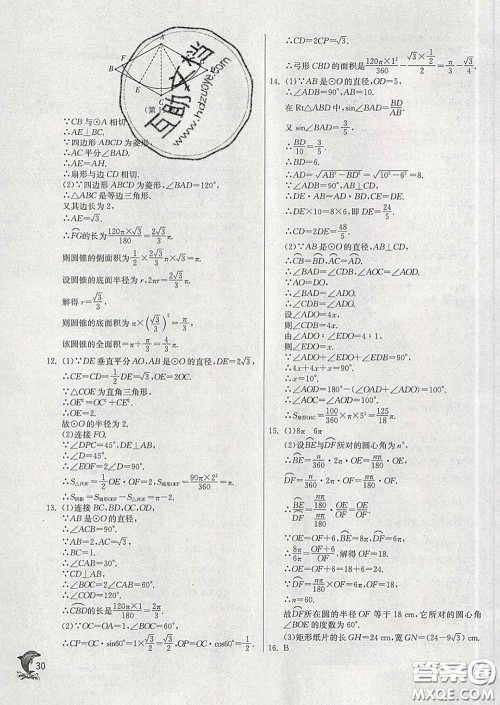 ∵CB与⊙A相切,
∴AE⊥BC.
∵四边形ABCD为菱形,
∴AC平分∠BAD.
∴AE=AH.
∴扇形与边CD相切.
(2)∵四边形ABCD为菱形,∠BAD=120°,
∴△ABC是等边三角形.
又其边长为2,
∴AE=√3.
∴FG的长为120π×√3/180=2√3/3 π.
则圆锥的侧面积为1/2×2√3/3π×√3=π.
则圆锥的底面半径为r,2πr=2√3/3 π.
解得r=√3/3,
则圆锥的底面面积为π×(√3/3)²=π/3.
该圆锥的全面积=π+π/3=4/3 π.
12. (1)∵DE垂直平分AO,AB是⊙O的直径,DE=2√3,
∴CE=CD=1/2DE=√3,OE=2OC.
∵△COE为直角三角形,
∴OE²=OC²+CE².
故⊙O的半径为2.
(2)连接FO.
∵∠DPC=45°,DE⊥AB,
∴∠D=45°.
∴∠EOF=2∠D=90°.
∵S△FOE=1/2OE·OF=2,S扇形OEF=90π×2²/360=π,
∴S阴影=S扇形OEF-S△FOE=π-2.
13. (1)连接BC,BD,OC,OD.
∵AB为⊙O的直径,
∵AB=2,AC=√3,
∴∠ACB=90°.
∴BC=1.
∴∠CAB=30°.
∴∠COB=60°.
∴∠CBD=120°.
∴CBD的长为120π×1/180=2π/3.
(2)∵OC=OA=1,∠COB=60°,
∴CP=CO·sin60°=1×√3/2=√3/2,OP=CO·cos60°=1/2.
∴CD=2CP=√3.
∴弓形CBD的面积是120π×1²/360-√3×1/2/2=π/3-√3/4.
14. (1)∵AB是⊙O的直径,OD=5,
∴∠ADB=90°,AB=10.
在Rt△ABD中,sin∠BAD=BD/AB,
又sin∠BAD=3/5,
∴BD/10=3/5,BD=6.
∴AD=√AB²-BD²=√10²-6²=8.
∵∠ADB=90°,AB⊥CD,
∴DE×10=8×6,即DE=24/5.
∴CD=2DE=48/5.
(2)∵AB是⊙O的直径,AB⊥CD,
∴CB=BD,AC=AD.
∴∠BAD=∠CDB,∠AOC=∠AOD.
∵AO=DO.
∴∠BAD=∠ADO.
∴∠CDB=∠ADO.
设∠ADO=4x,
则∠CDB=4x.
由∠ADO∶∠EDO=4∶1,
则∠EDO=x.
∵∠ADO+∠EDO+∠EDB=90°,
∴4x+4x+x=90°.
∴x=10°.
∴∠AOD=180°-(∠OAD+∠ADO)=100°.
∴∠AOC=∠AOD=100°.
∴S扇形OAC=100/360×π×5²=125/18 π.
15. (1)8π 6π
(2)设BE与DF所对的圆心角为n°,
∴BE=n/360·2π·OE=nπ/180·OE,
DF=n/360·2π·OF=nπ/180·OF.
∵OE=OF+6,BE=8π,DF=6π,
∴BE/DF=OF+6/OF=8π/6π,解得OF=18.
∵DF=nπ/180·OF,
故DF所在圆的半径OF等于18 cm,它所对的圆心角
∠BOE的度数为60°.
(3)矩形纸片的长GH=24 cm,宽GN=(24-9√3) cm.
16. B
30
互助文档
www.hdzuoye.com
答案圈
MXQE.COM